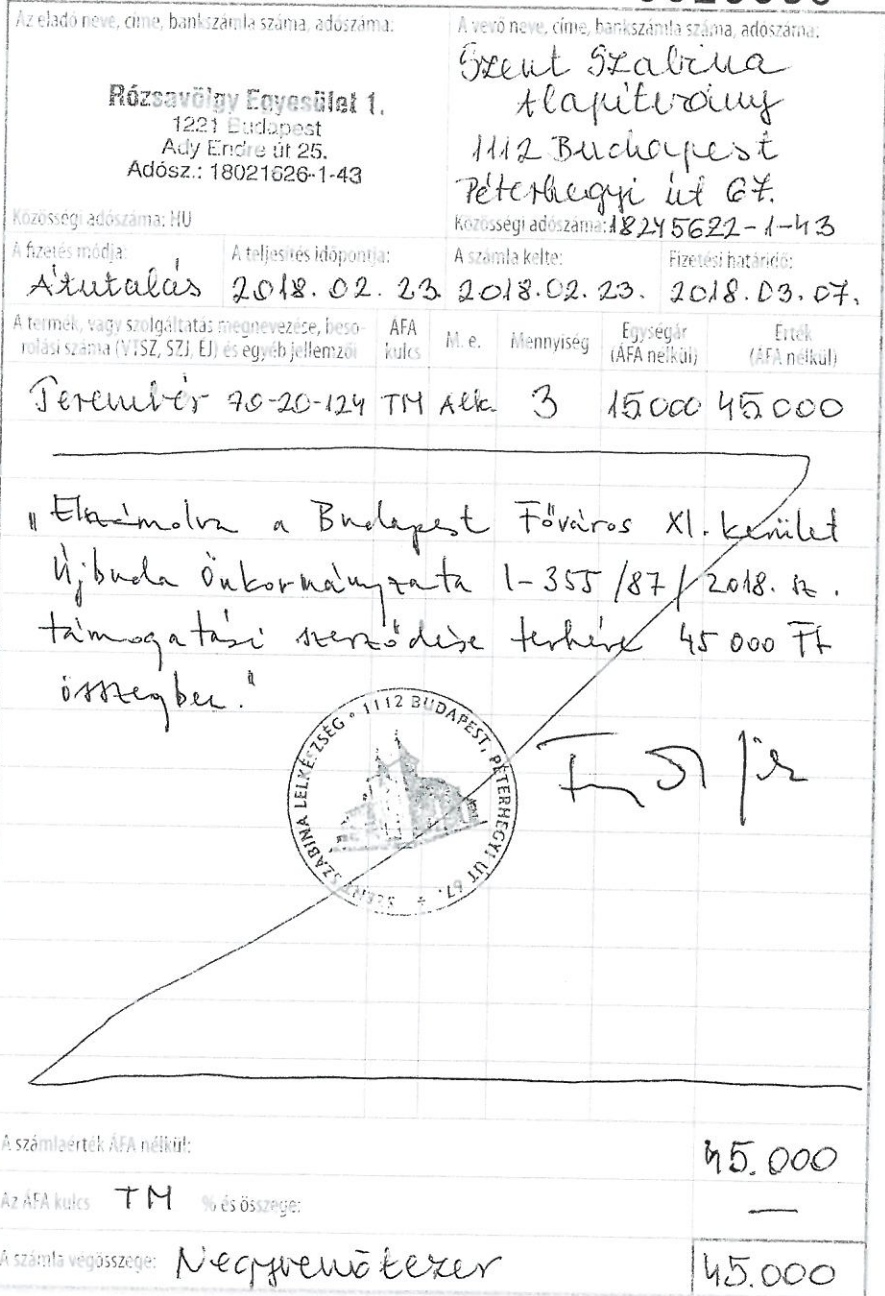 Az eladó neve, címe, bankszámla száma, adószáma:
Rózsavölgy Egyesület 1.
1221 Budapest
Ady Endre út 25.
Adósz.: 18021626-1-43
Közösségi adószáma: HU
A vevő neve, címe, bankszámla száma, adószáma:
Szent Szabina
Alapítvány
1112 Budapest
Péterhegyi út 67.
Közösségi adószáma: 18245622-1-43
A fizetés módja:
Átutalás
A teljesítés időpontja:
2018. 02. 23.
A számla kelte:
2018.02. 23.
Fizetési határidő:
2018.03.07.
A termék, vagy szolgáltatás megnevezése, beso-
rolási száma (VTSZ, SZJ, ÉJ) és egyéb jellemzői
ÁFA
kulcs
M. e.
Mennyiség
Egységár
(ÁFA nélkül)
Érték
(ÁFA nélkül)
Terembér 70-20-124 TM Alk. 3 15000 45000
"Elszámolva a Budapest Főváros XI. kerület
Újbuda Önkormányzata I-355/87/2018. sz.
támogatási szerződése terhére 45 000 Ft
összegben."
SZENT SZABINA LELKÉSZSÉG • 1112 BUDAPEST, PÉTERHEGYI ÚT 67.
A számlaérték ÁFA nélkül: 45.000
Az ÁFA kulcs TM % és összege: —
A számla végösszege: Negyvenötezer 45.000